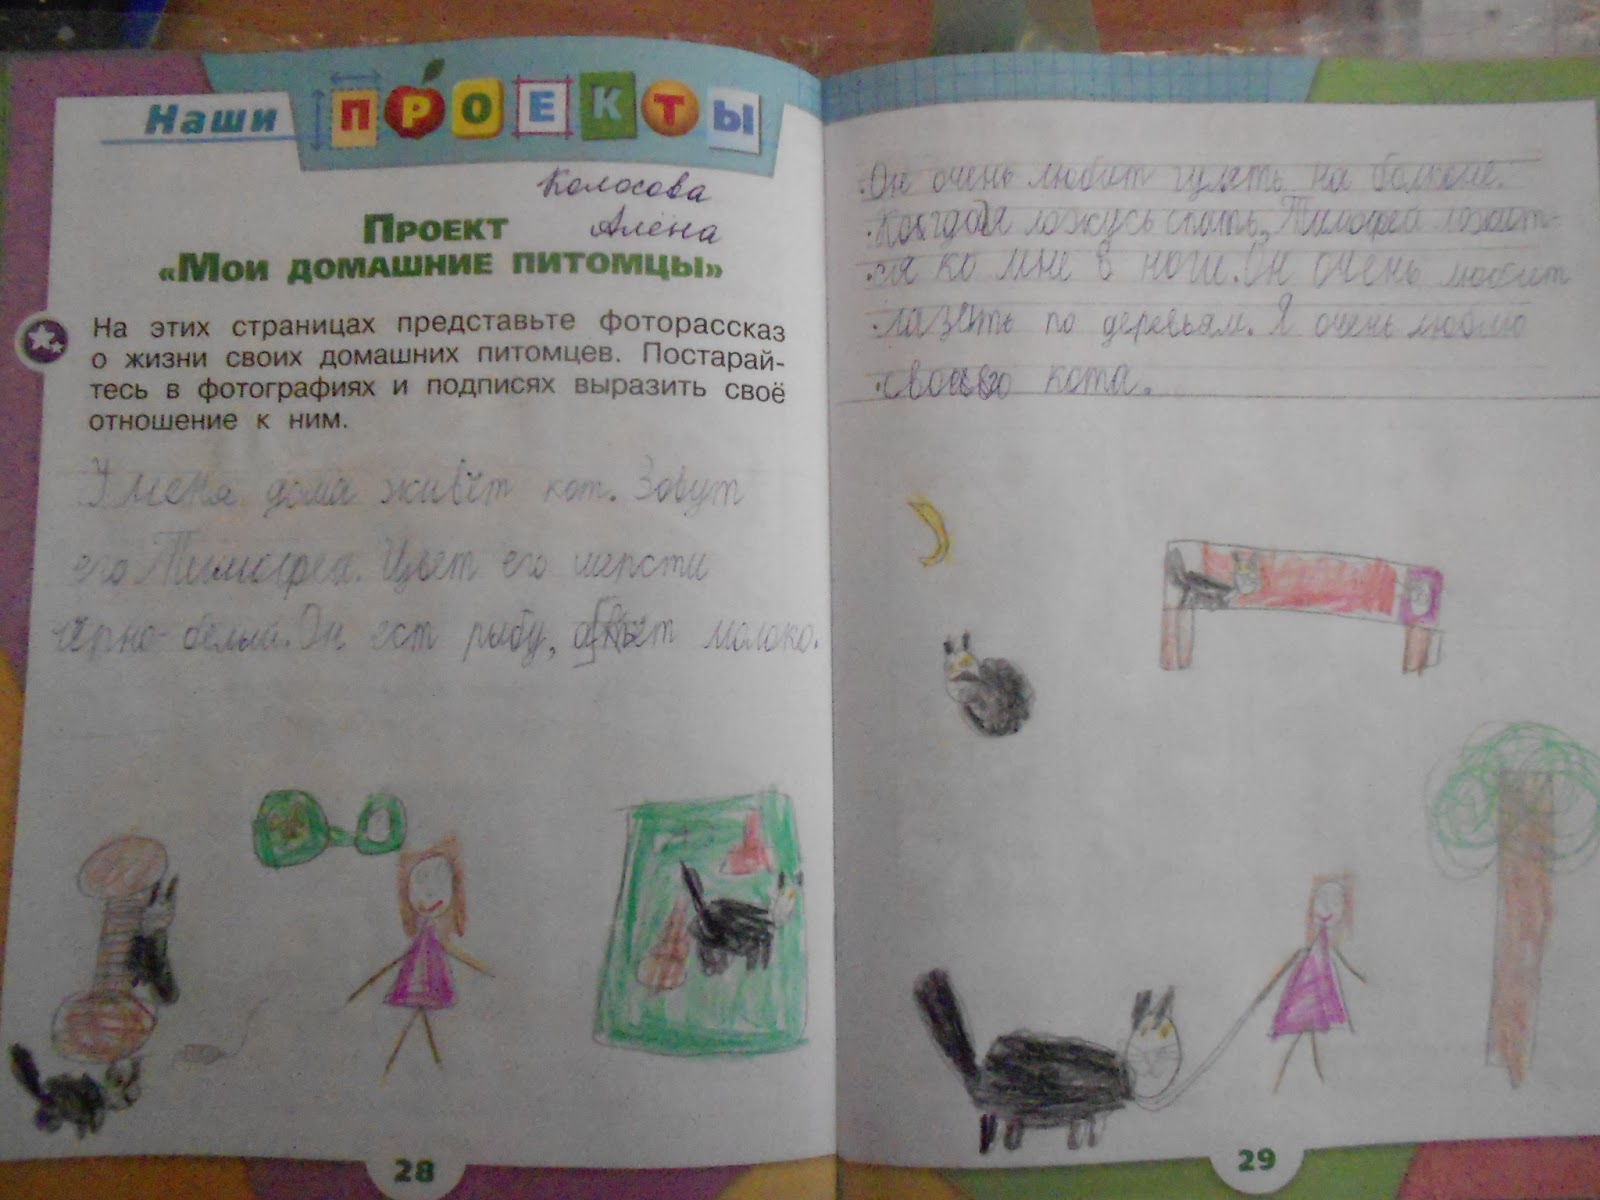 Наши ПРОЕКТЫ
Колосова
Алёна
ПРОЕКТ
«МОИ ДОМАШНИЕ ПИТОМЦЫ»
На этих страницах представьте фоторассказ
о жизни своих домашних питомцев. Постарай-
тесь в фотографиях и подписях выразить своё
отношение к ним.
У меня дома живёт кот. Зовут
его Тимофей. Цвет его шерсти
чёрно-белый. Он ест рыбу, молоко.
28
Он очень любит гулять на балконе.
Когда я ложусь спать, Тимофей ложит-
ся ко мне в ноги. Он очень любит
лазеть по деревьям. Я очень люблю
своего кота.
29